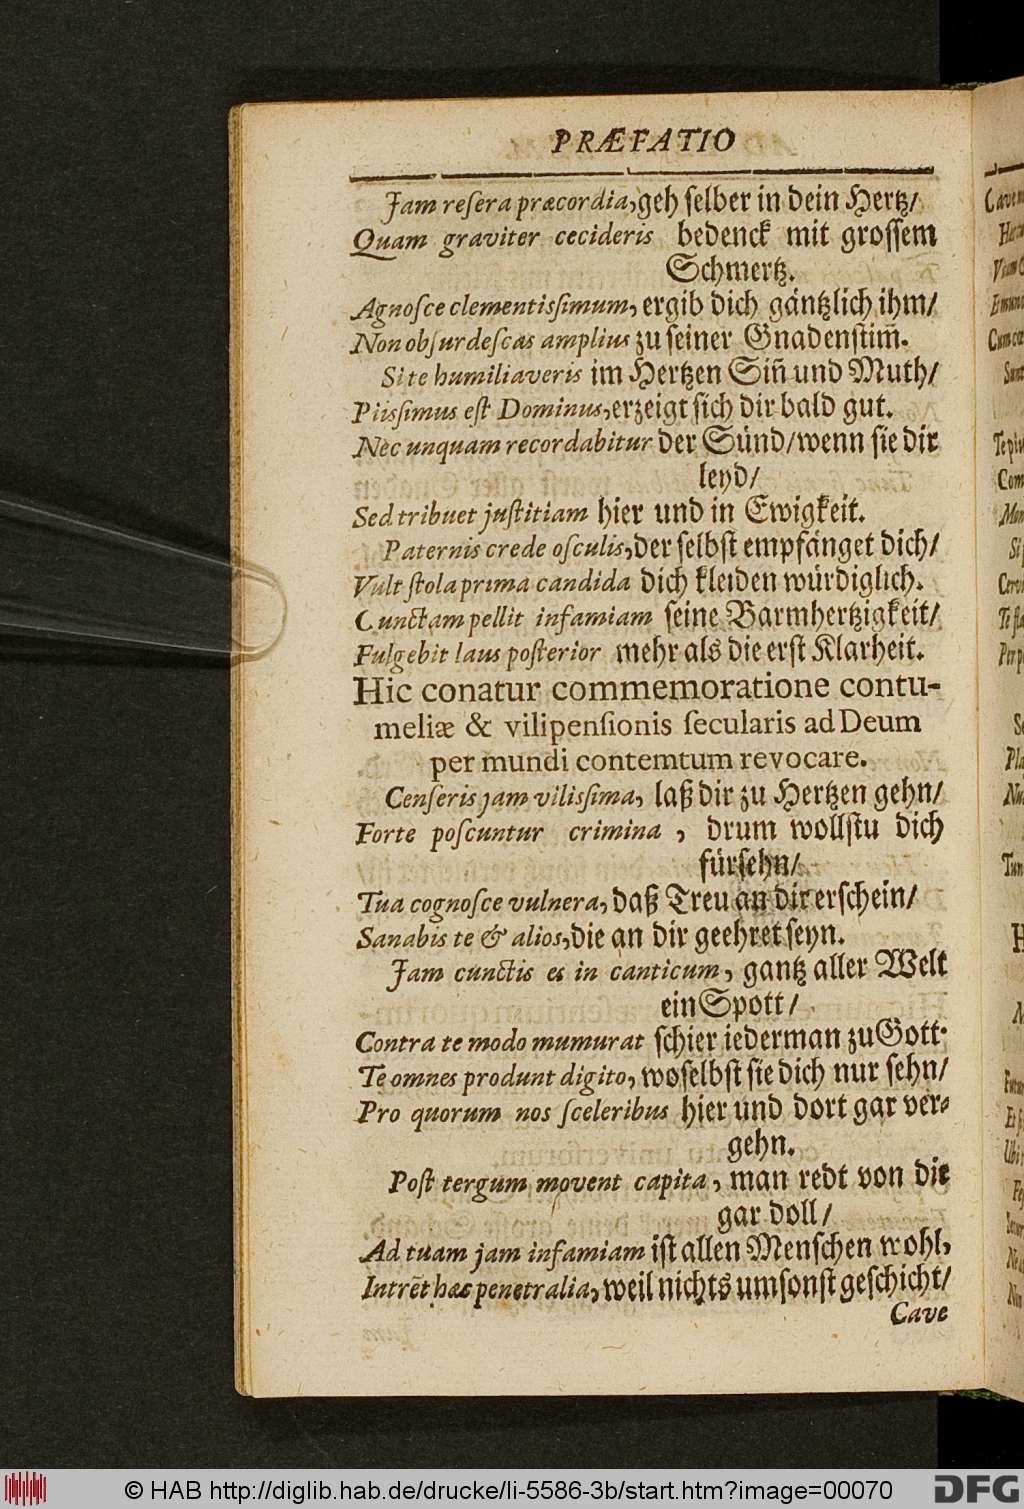 PRÆFATIO
Jam reſera præcordia, geh ſelber in dein Hertz/
Quam graviter cecideris bedenck mit groſſem
Schmertz.
Agnoſce clementiſſimum, ergib dich gäntzlich ihm/
Non obſurdeſcas amplius zu ſeiner Gnadenſtim̃.
Si te humiliaveris im Hertzen Siñ und Muth/
Piiſſimus eſt Dominus, erzeigt ſich dir bald gut.
Nec unquam recordabitur der Sünd/ wenn ſie dir
leyd/
Sed tribuet juſtitiam hier und in Ewigkeit.
Paternis crede oſculis, der ſelbſt empfänget dich/
Vult ſtola prima candida dich kleiden würdiglich.
Cunctam pellit infamiam ſeine Barmhertzigkeit/
Fulgebit laus poſterior mehr als die erſt Klarheit.
Hic conatur commemoratione contu-
meliæ & vilipenſionis ſecularis ad Deum
per mundi contemtum revocare.
Cenſeris jam viliſſima, laß dir zu Hertzen gehn/
Forte poſcuntur crimina, drum wollſtu dich
fürſehn/
Tua cognoſce vulnera, daß Treu an dir erſchein/
Sanabis te & alios, die an dir geehret ſeyn.
Jam cunctis es in canticum, gantz aller Welt
ein Spott/
Contra te modo mumurat ſchier iederman zu Gott.
Te omnes produnt digito, woſelbſt ſie dich nur ſehn/
Pro quorum nos ſceleribus hier und dort gar ver-
gehn.
Poſt tergum movent capita, man redt von die
gar doll/
Ad tuam jam infamiam iſt allen Menſchen wohl,
Intrēt hæc penetralia, weil nichts umſonſt geſchicht/
Cave
© HAB http://diglib.hab.de/drucke/li-5586-3b/start.htm?image=00070
DFG